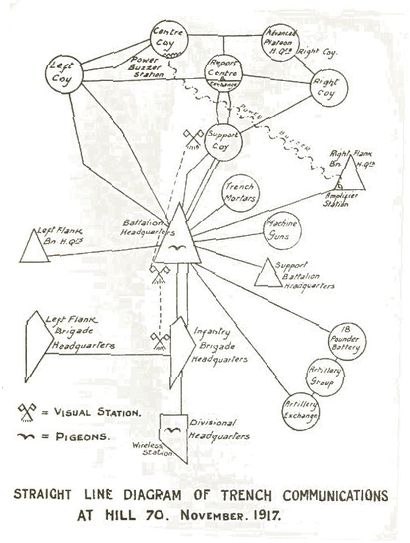 Centre
Coy
Advanced
Platoon
H.Qrs
Right Coy.
Left
Coy
Power
Buzzer
Station
Report
Centre
Exchange
Right
Coy
POWER
BUZZER
Support
Coy
Right Flank
Bn H.Qrs
Amplifier
Station
Trench
Mortars
Battalion
Headquarters
Machine
Guns
Left Flank
Bn H.Qrs
Support
Battalion
Headquarters
Left Flank
Brigade
Headquarters
Infantry
Brigade
Headquarters
18
Pounder
Battery
Artillery
Group
Artillery
Exchange
= VISUAL STATION.
= PIGEONS.
Divisional
Headquarters
Wireless
Station
STRAIGHT LINE DIAGRAM OF TRENCH COMMUNICATIONS
AT HILL 70. NOVEMBER. 1917.